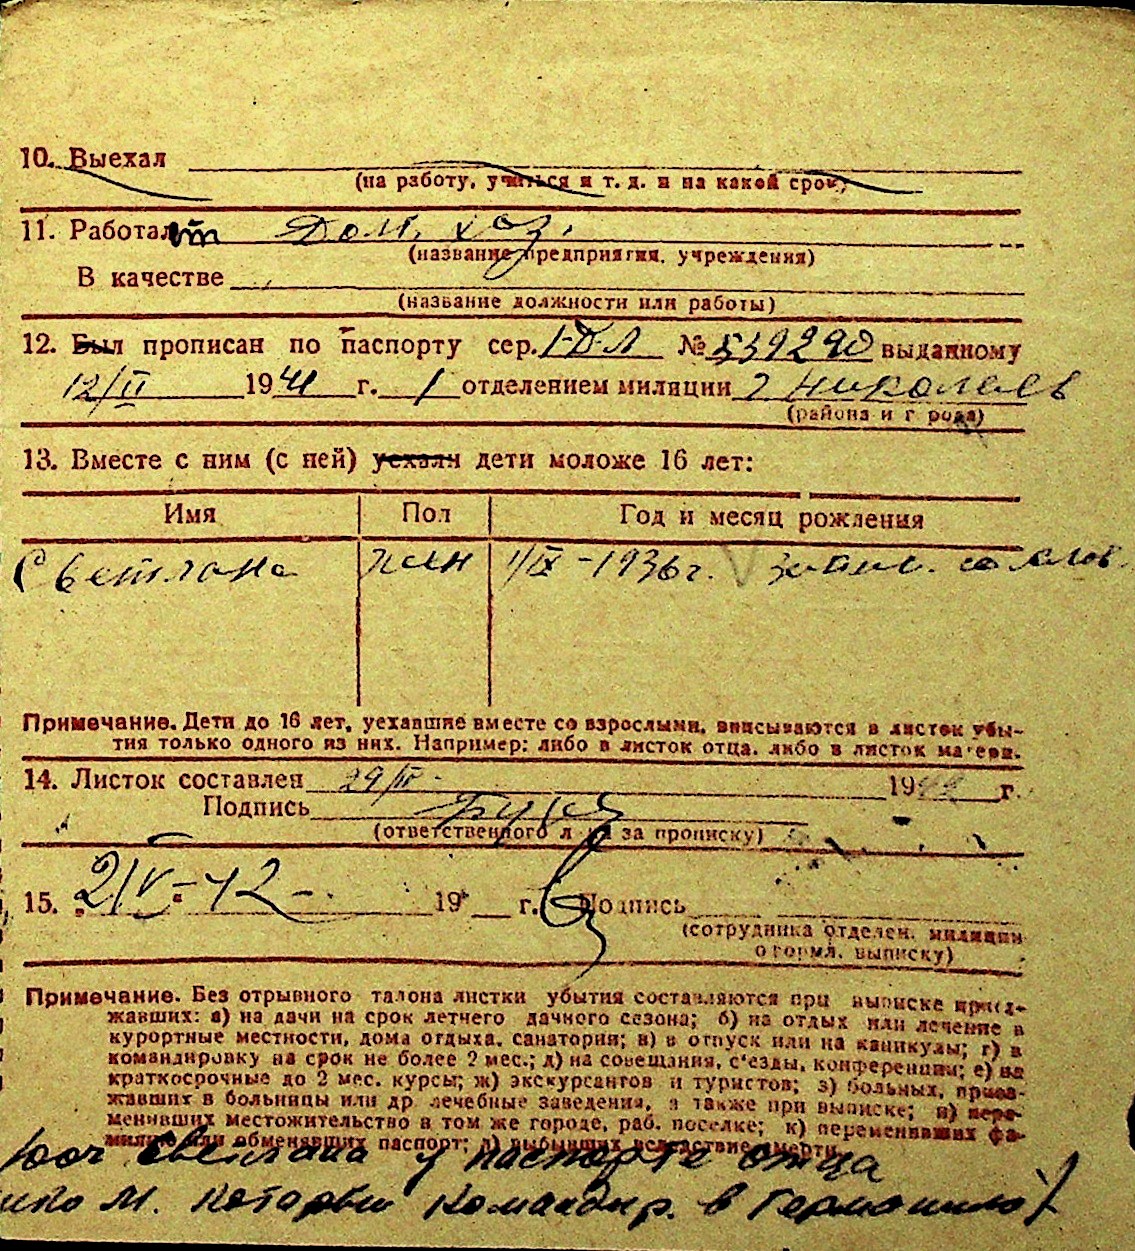 10. Выехал
(на работу, учиться и т. д. и на какой срок)
11. Работает Дом. хоз.
(название предприятия, учреждения)
В качестве
(название должности или работы)
12. Был прописан по паспорту сер. I-ДЛ № 539290 выданному
12/II 1941 г. 1 отделением милиции г Николаев
(района и г рода)
13. Вместе с ним (с ней) уехали дети моложе 16 лет:
Имя Пол Год и месяц рождения
Светлана жен 1/IX-1936г. со слов.
Примечание. Дети до 16 лет, уехавшие вместе со взрослыми, вписываются в листок убы-
тия только одного из них. Например: либо в листок отца, либо в листок матери.
14. Листок составлен 29/ 19 г.
Подпись
(ответственного л за прописку)
15. " 2/V-42 - 19 г. Подпись
(сотрудника отделен. милиции
оформл. выписку)
Примечание. Без отрывного талона листки убытия составляются при выписке приез-
жавших: а) на дачи на срок летнего дачного сезона; б) на отдых или лечение в
курортные местности, дома отдыха, санатории; в) в отпуск или на каникулы; г) в
командировку на срок не более 2 мес.; д) на совещания, с'езды, конференции; е) на
краткосрочные до 2 мес. курсы; ж) экскурсантов и туристов; з) больных, приез-
жавших в больницы или др лечебные заведения, а также при выписке; и) пере-
менивших местожительство в том же городе, раб. поселке; к) переменивших фа-
милию или обменявших паспорт; л) выбывших вследствие смерти.
Светлана у паспорте отца
М. который командир. в